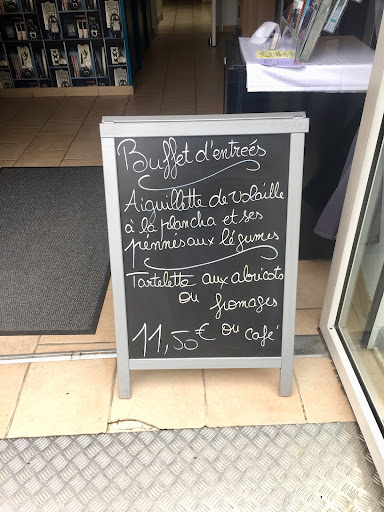 Buffet d'entreés
Aiguillette de volaille
à la plancha et ses
pennés aux légumes
Tartelette aux abricots
ou fromages
11,50€ ou café